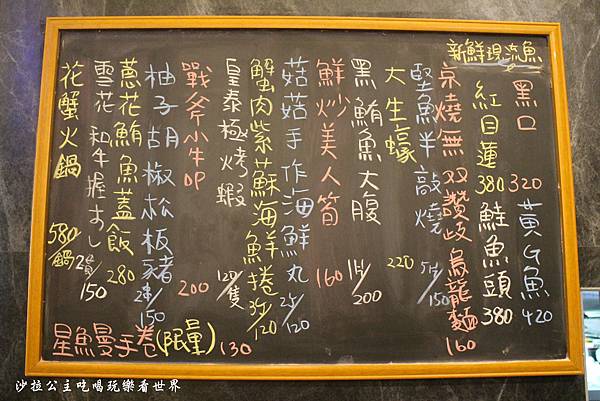 新鮮現流魚
黑口 320
黃G魚 420
紅目蓮 380
鮭魚頭 380
京燒無双讚歧烏龍麵 160
堅魚半敲燒 5片/150
大生蠔 220
黑鮪魚大腹 1片/200
鮮炒美人筍 160
菇菇手作海鮮丸 2个/120
蟹肉紫蘇海鮮捲 3个/120
皇泰極烤蝦 120/隻
戰斧小牛OP 200
柚子胡椒松板豬 2串/150
蔥花鮪魚蓋飯 280
雪花和牛握すし 2貫/150
花蟹火鍋 580/鍋
星魚曼手卷(限量) 130
沙拉公主吃喝玩樂看世界